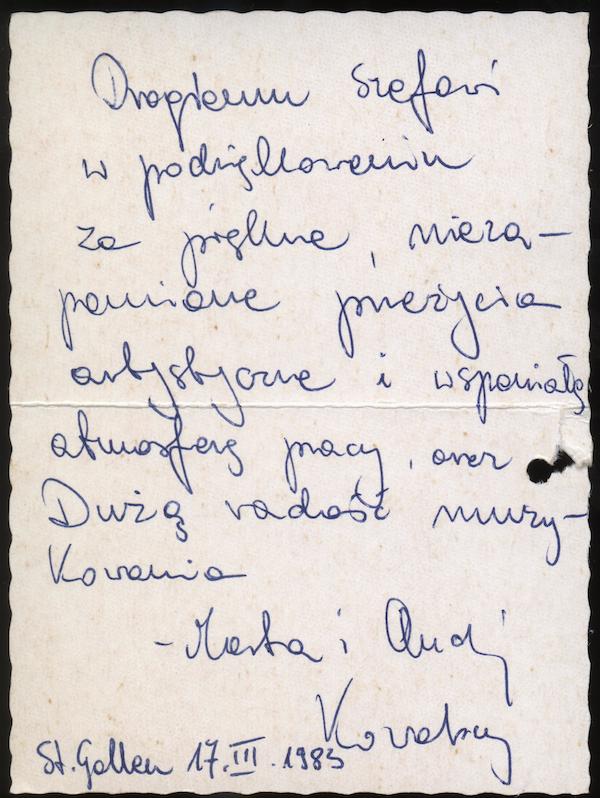 Drogiemu Szefowi
w podziękowaniu
za piękne, nieza-
pomniane przeżycia
artystyczne i wspaniałą
atmosferę pracy, oraz
Dużą radość muzy-
kowania
- Marta i Andj
St. Gallen 17.III.1983